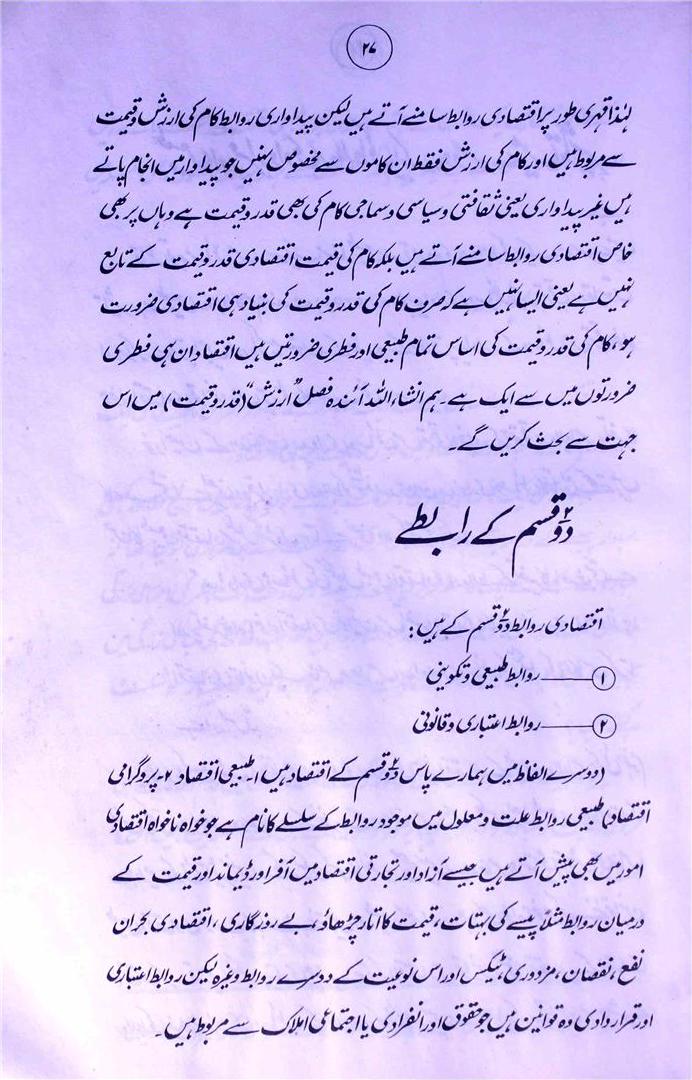 ۲۷
لہٰذا قہری طور پر اقتصادی روابط سامنے آتے ہیں لیکن پیداواری روابط کام کی ارزش وقیمت
سے مربوط ہیں اور کام کی ارزش فقط ان کاموں سے مخصوص نہیں جو پیداوار میں انجام پاتے
ہیں غیر پیداواری یعنی ثقافتی وسیاسی وسماجی کام کی بھی قدر وقیمت ہے وہاں پر بھی
خاص اقتصادی روابط سامنے آتے ہیں بلکہ کام کی قیمت اقتصادی قدر وقیمت کے تابع
نہیں ہے یعنی ایسا نہیں ہے کہ صرف کام کی قدر وقیمت کی بنیاد ہی اقتصادی ضرورت
ہو، کام کی قدر وقیمت کی اساس تمام طبیعی اور فطری ضرورتیں ہیں اقتصاد ان ہی فطری
ضرورتوں میں سے ایک ہے۔ ہم انشاء اللہ آئندہ فصل "ارزش" (قدر وقیمت) میں اس
جہت سے بحث کریں گے۔
دو۲ قسم کے رابطے
اقتصادی روابط دو۲ قسم کے ہیں:
۱ — روابط طبیعی وتکوینی
۲ — روابط اعتباری وقانونی
(دوسرے الفاظ میں ہمارے پاس دو۲ قسم کے اقتصاد ہیں ۱۔ طبیعی اقتصاد ۲۔ پروگرامی
اقتصاد) طبیعی روابط علت ومعلول میں موجود روابط کے سلسلے کا نام ہے جو خواہ ناخواہ اقتصادی
امور میں بھی پیش آتے ہیں جیسے آزاد اور تجارتی اقتصاد میں آفر اور ڈیمانڈ اور قیمت کے
درمیان روابط مثلاً پیسے کی بہتات، قیمت کا اتار چڑھاؤ، بے روزگاری، اقتصادی بحران
نفع، نقصان، مزدوری، ٹیکس اور اس نوعیت کے دوسرے روابط وغیرہ لیکن روابط اعتباری
اور قراردادی وہ قوانین ہیں جو حقوق اور انفرادی یا اجتماعی املاک سے مربوط ہیں۔